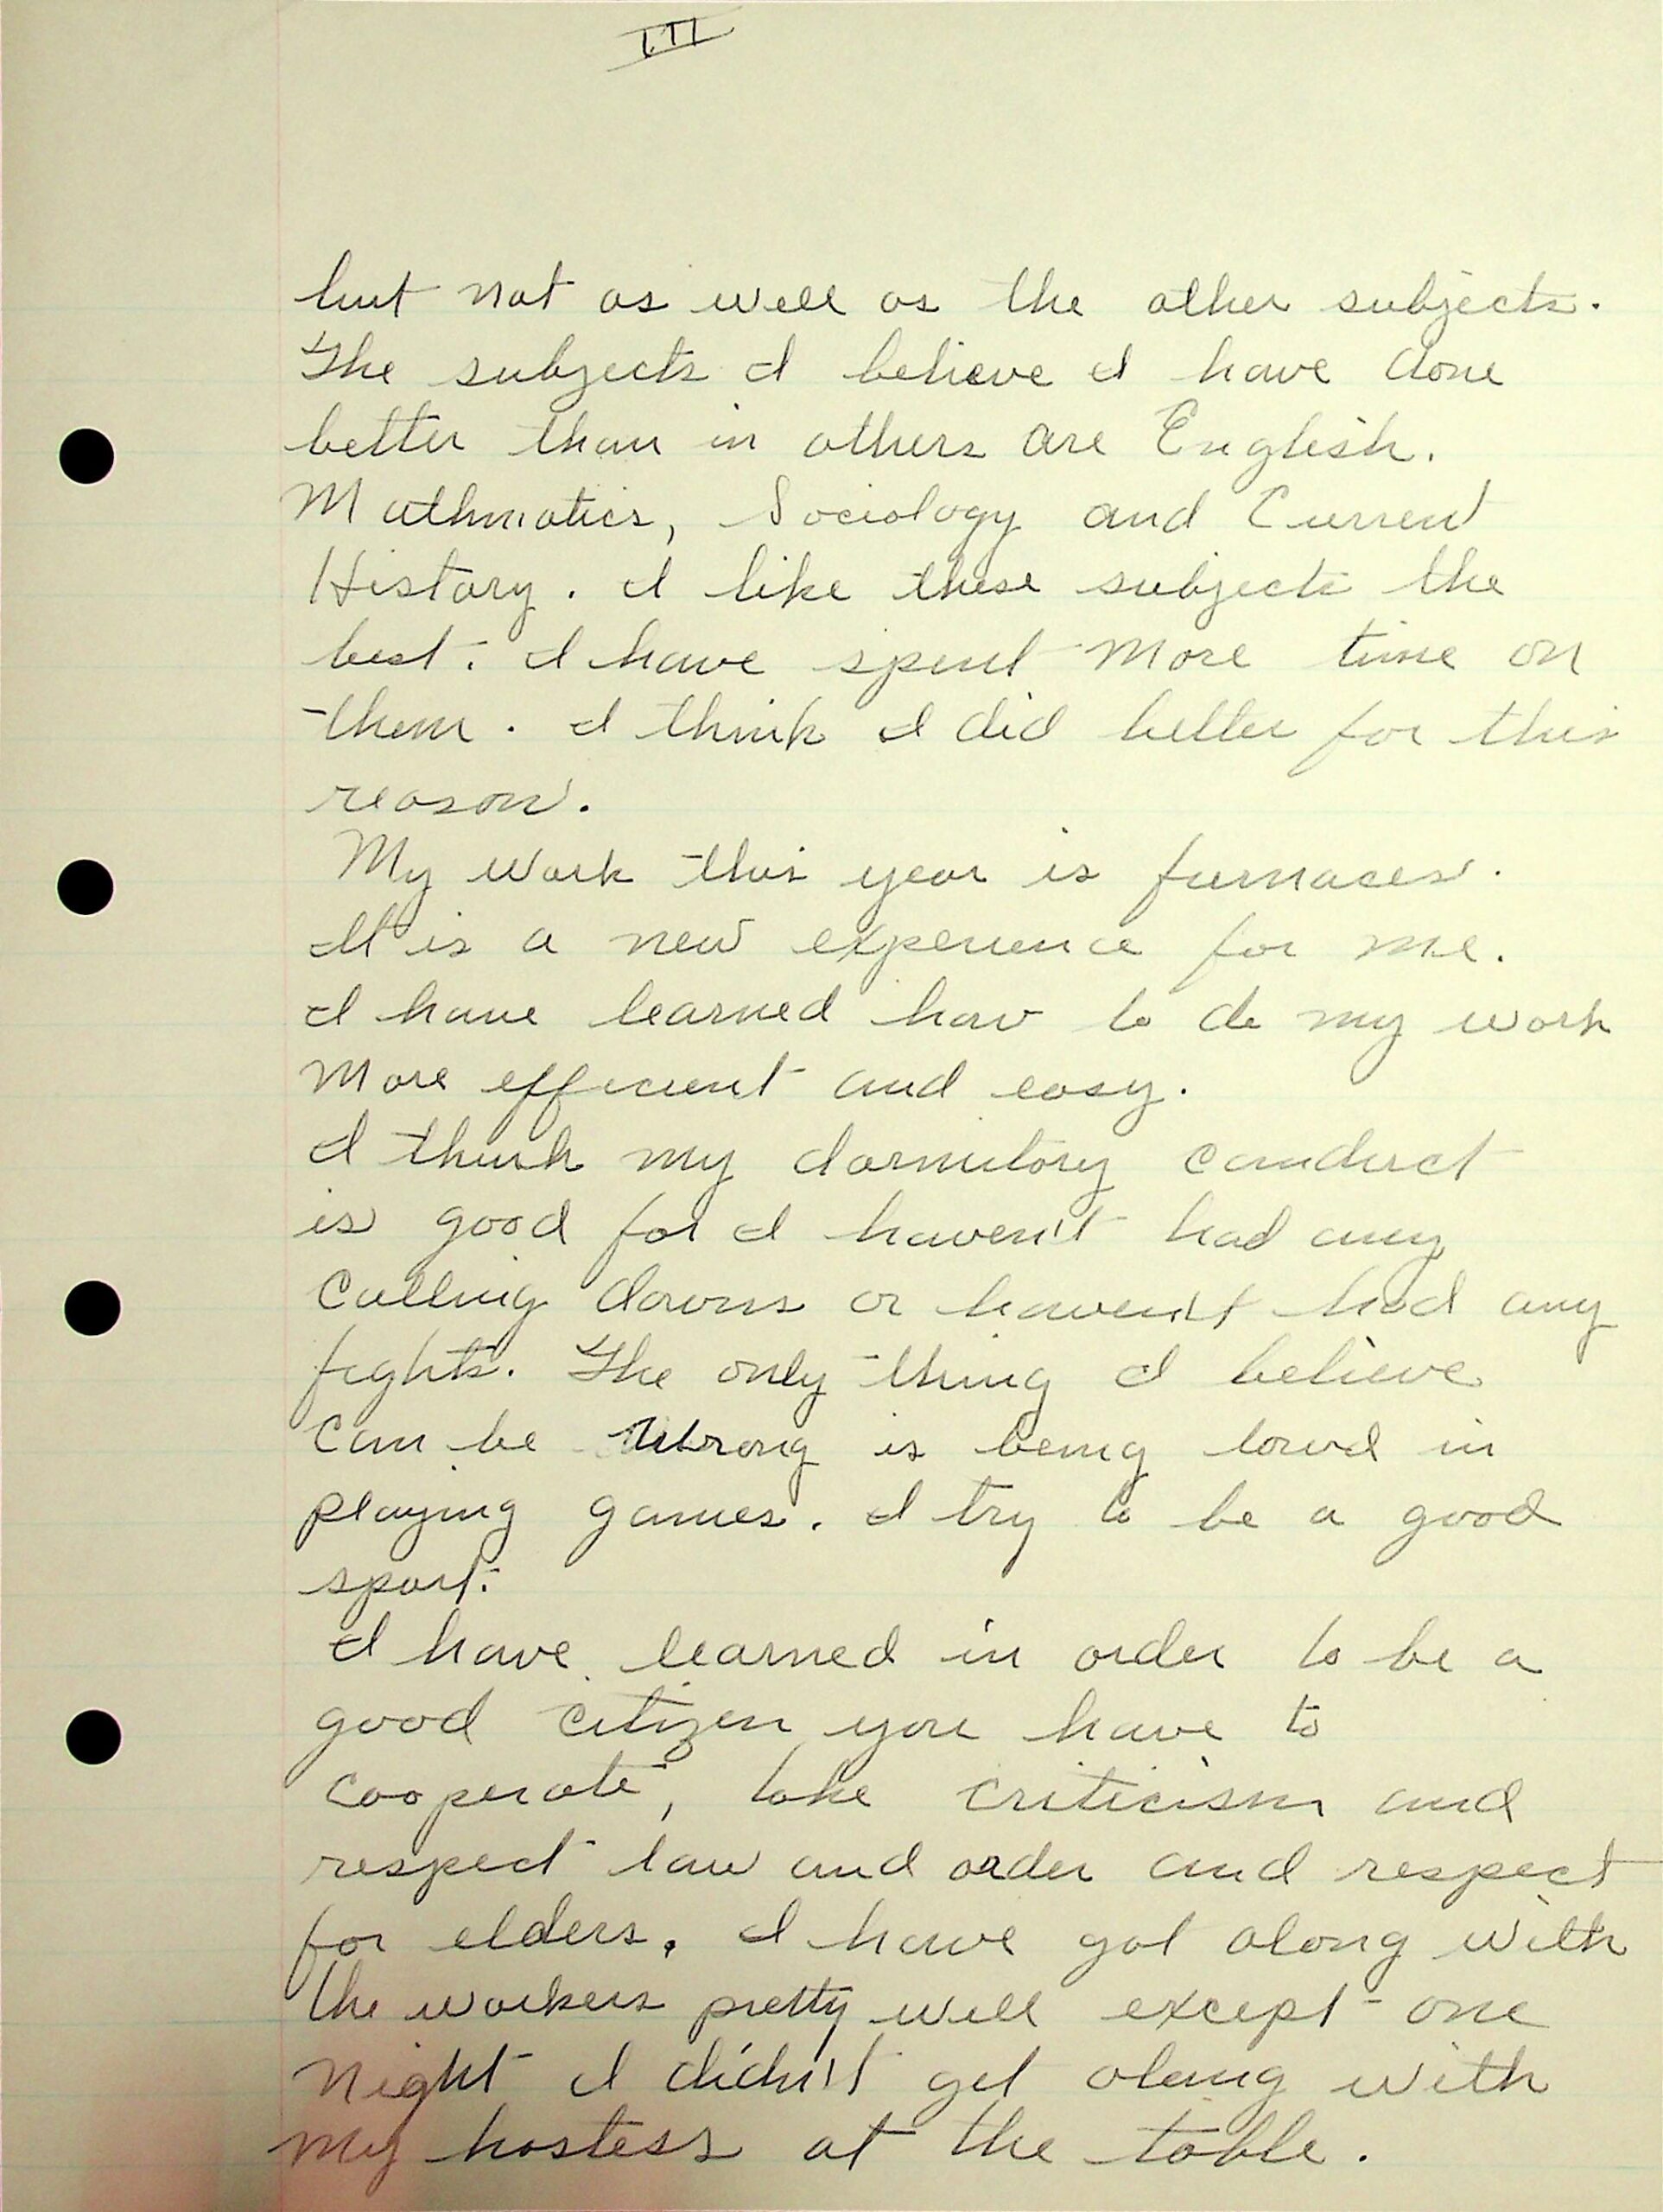 III
but not as well as the other subjects.
The subjects I believe I have done
better than in others are English.
Mathmatics, Sociology and Current
History. I like these subjects the
best. I have spent more time on
them. I think I did better for this
reason.
My work this year is furnaces.
It is a new experience for me.
I have learned how to do my work
more efficient and easy.
I think my dormitory conduct
is good for I haven't had any
calling downs or haven't had any
fights. The only thing I believe
can be wrong is being loud in
playing games. I try to be a good
sport.
I have learned in order to be a
good citizen you have to
cooperate, take criticism and
respect law and order and respect
for elders. I have got along with
the workers pretty well except one
night I didn't get along with
my hostess at the table.